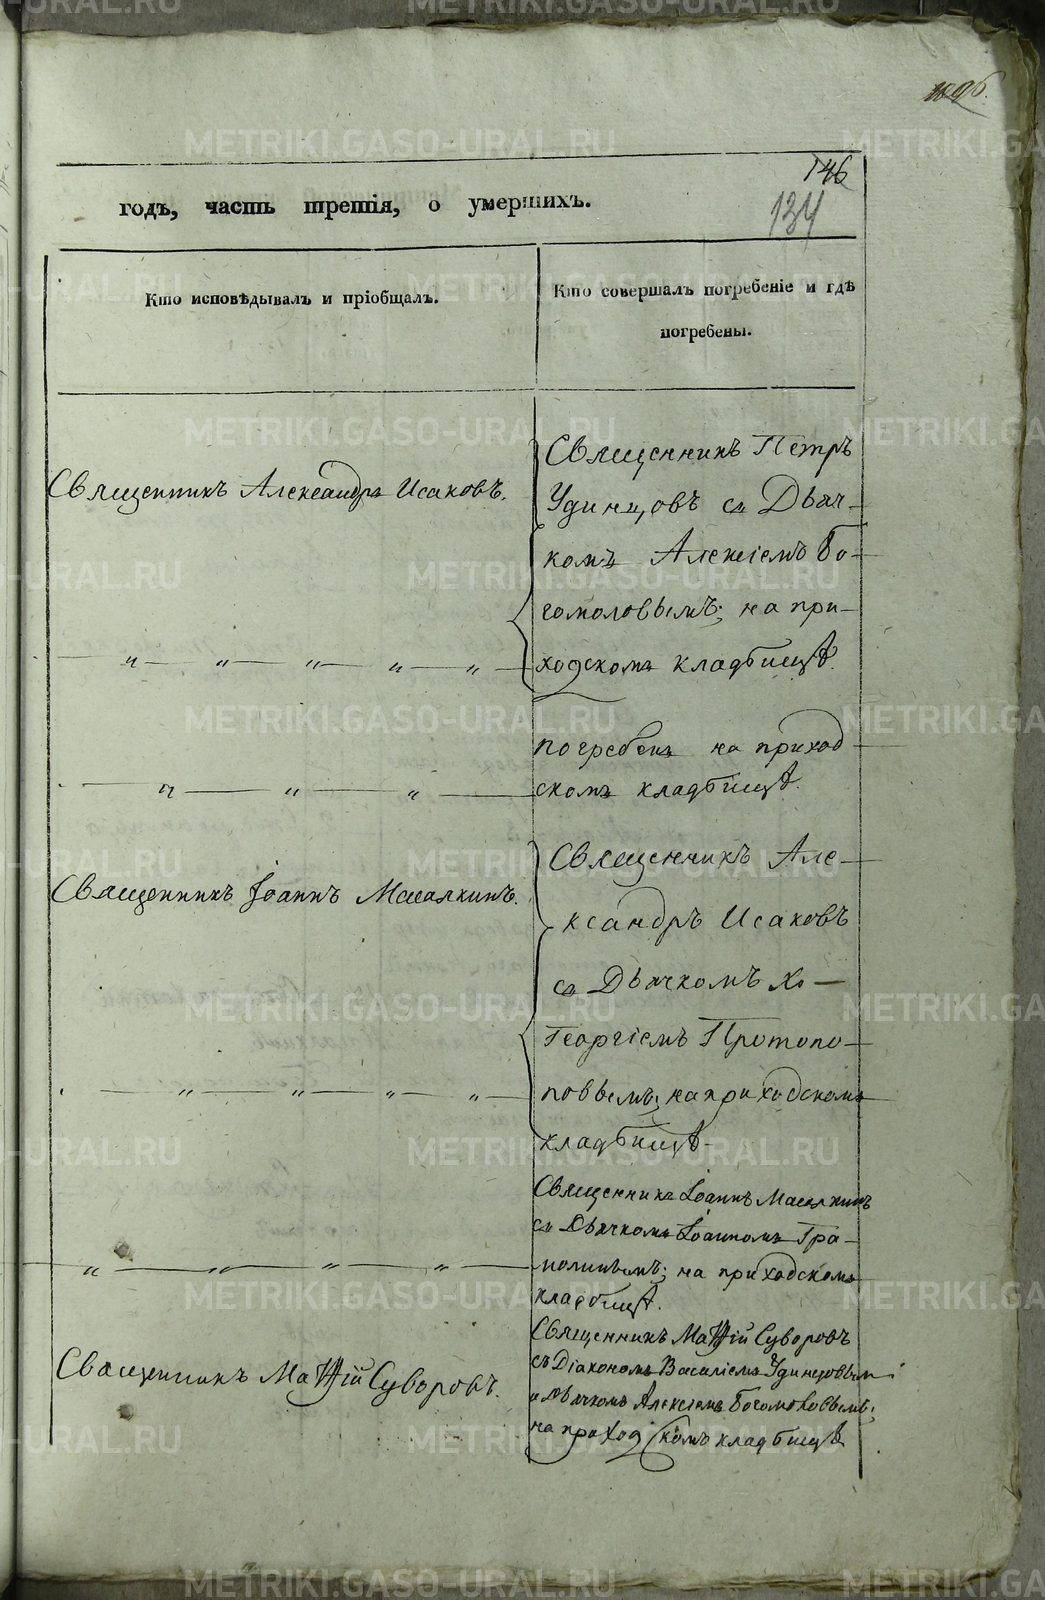 146
134
годъ, часть третія, о умершихъ.
Кто исповѣдывалъ и пріобщалъ.
Кто совершалъ погребеніе и гдѣ
погребены.
Священникъ Александръ Исаковъ.
Священникъ Петръ
Удинцовъ съ Дьяч-
комъ Алексіемъ Бо-
гомоловымъ; на при-
ходскомъ кладбищѣ.
погребенъ на приход-
скомъ кладбищѣ.
Священникъ Іоаннъ Масалкинъ.
Священникъ Але-
ксандръ Исаковъ
съ Дьячкомъ
Георгіемъ Протопо-
повымъ; на приходскомъ
кладбищѣ.
Священникъ Іоаннъ Масалкинъ
съ Дьячкомъ Іоанномъ
на приходскомъ
кладбищѣ.
Священникъ Матѳій Суворовъ.
Священникъ Матѳій Суворовъ
съ Діакономъ Василіемъ Удинцовымъ
и Дьячкомъ Алексіемъ Богомоловымъ;
на приходскомъ кладбищѣ
METRIKI.GASO-URAL.RU